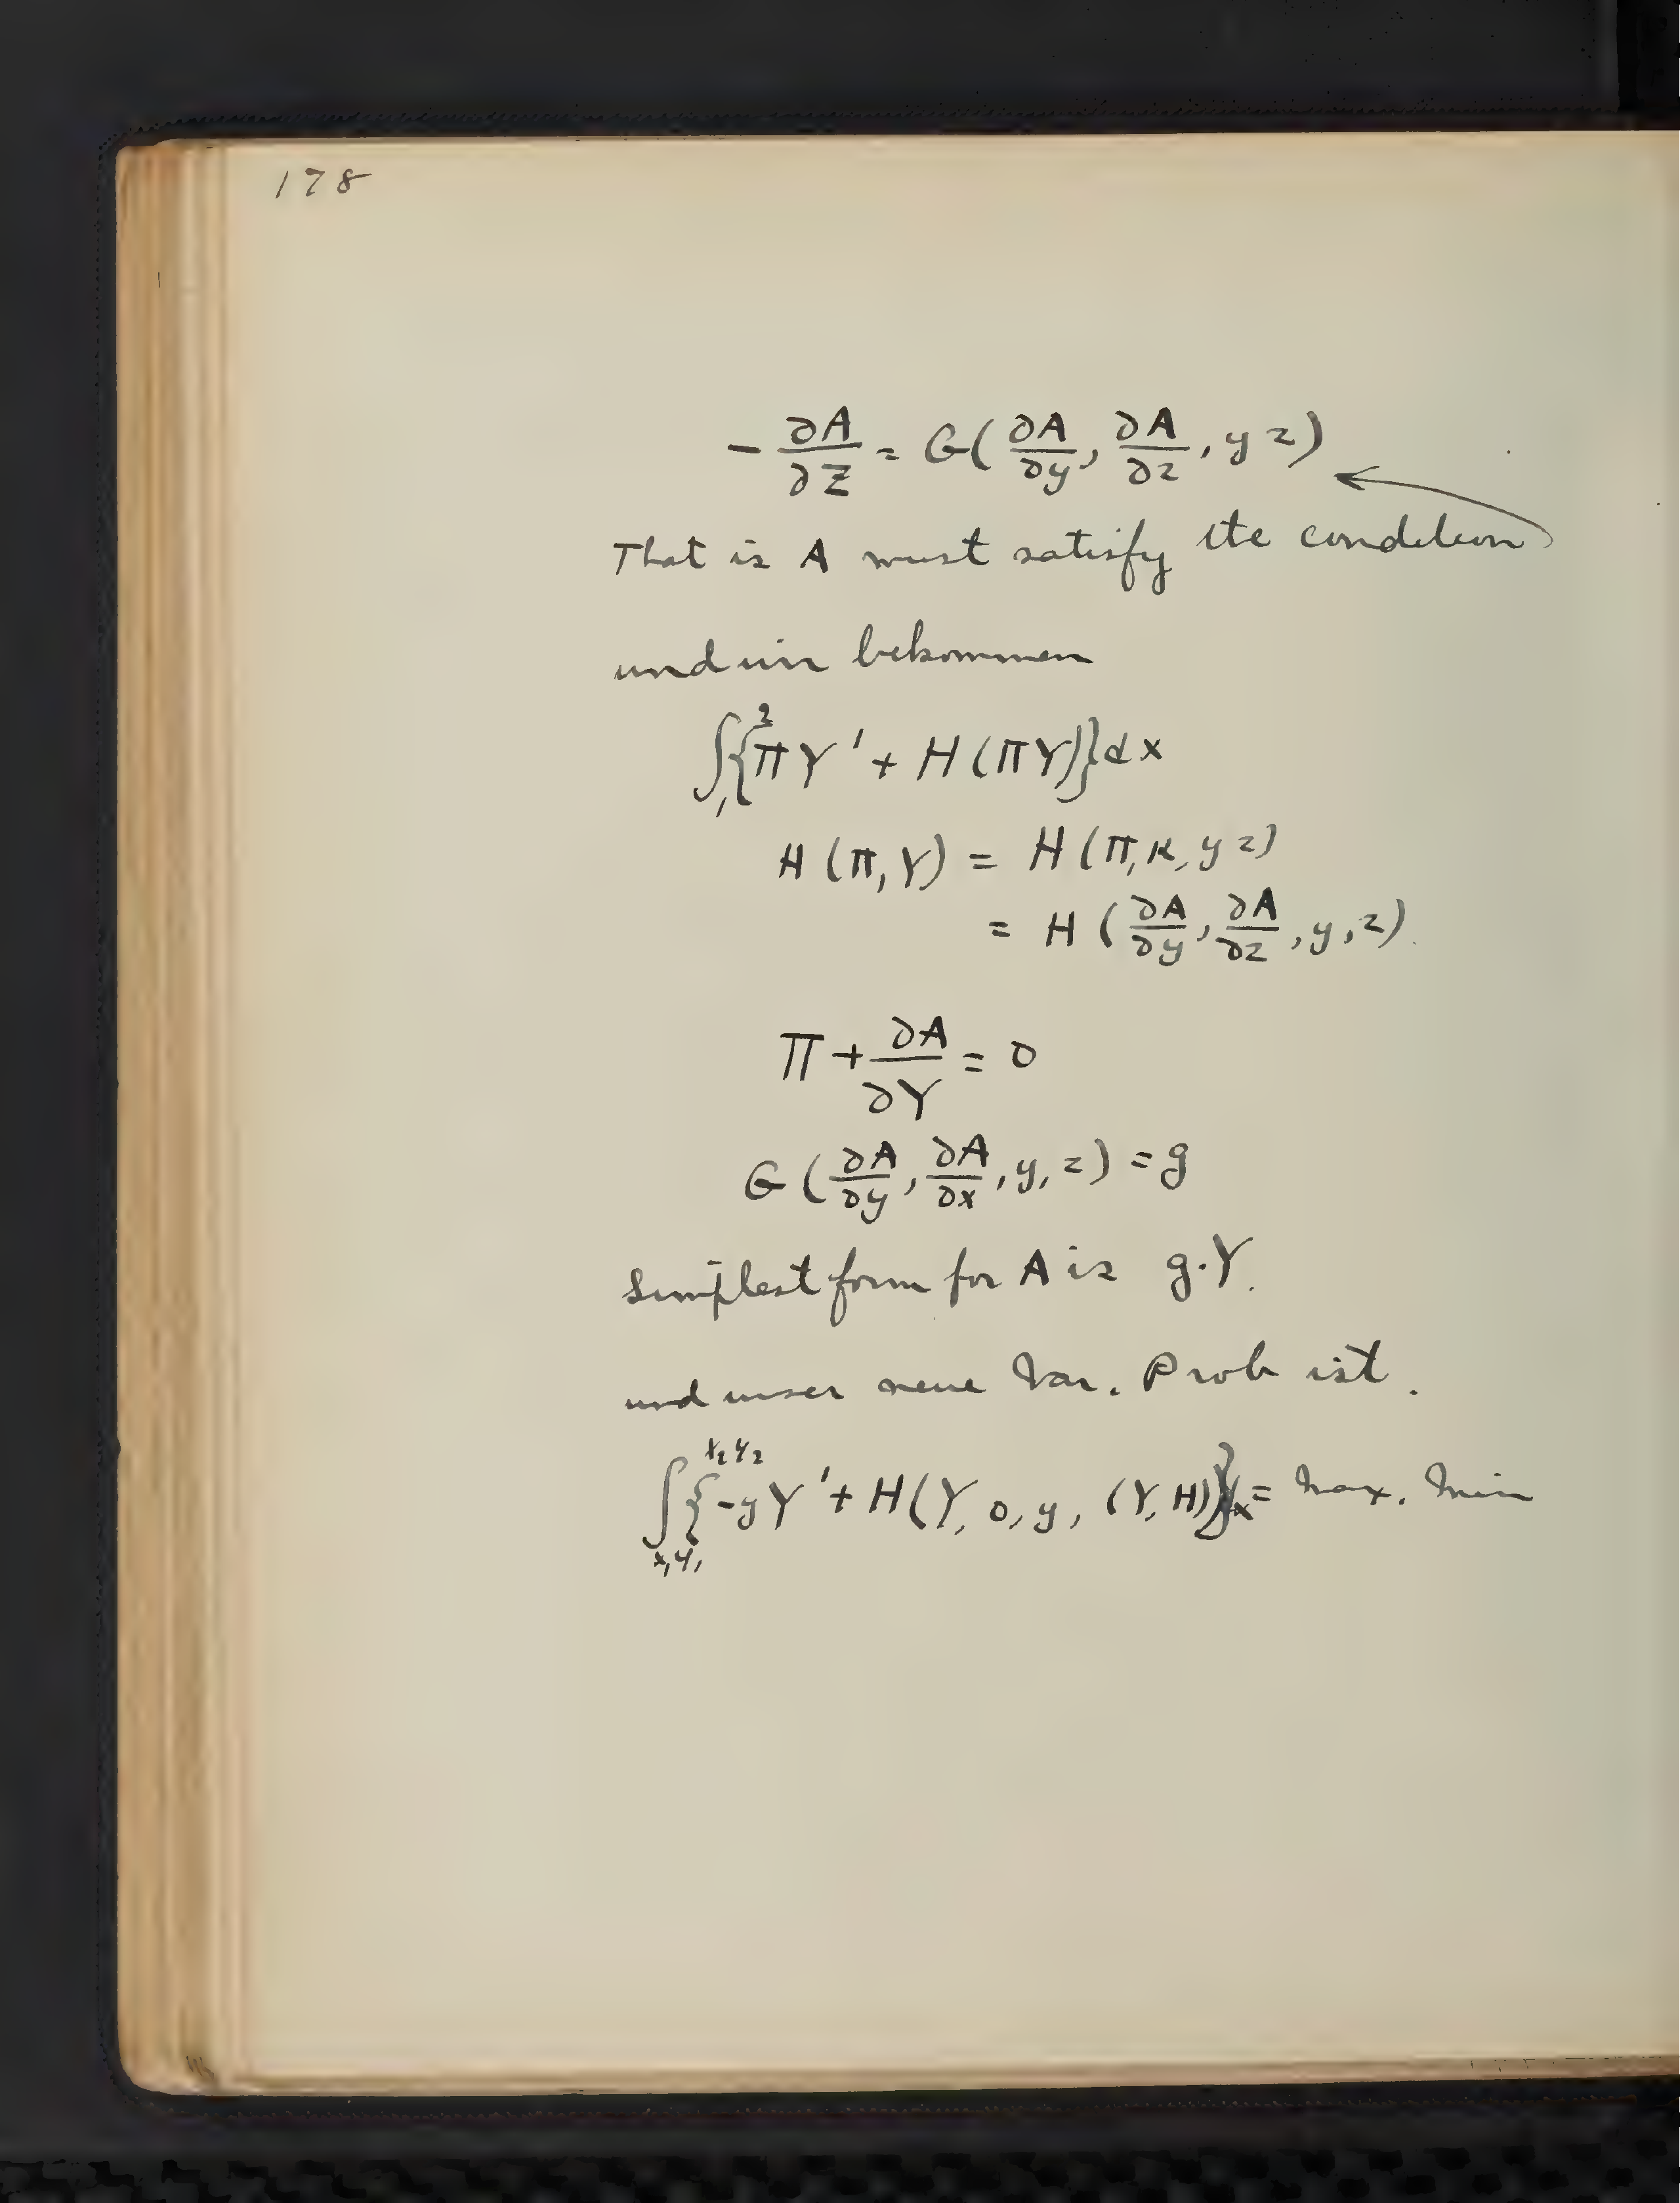 178
- ∂A/∂Z = G(∂A/∂y, ∂A/∂z, y z)
That is A must satisfy the condition
und wir bekommen
∫₁²{Π Y' + H(ΠY)}dx
H(Π, Y) = H(Π, κ, y z)
= H(∂A/∂y, ∂A/∂z, y, z).
Π + ∂A/∂Y = 0
G(∂A/∂y, ∂A/∂x, y, z) = g
Simplest form for A is g·Y.
und unser neue Var. Prob ist.
∫_{x₁y₁}^{x₂y₂}{-yY' + H(Y, 0, y, (Y, H)}dx = Max. Min